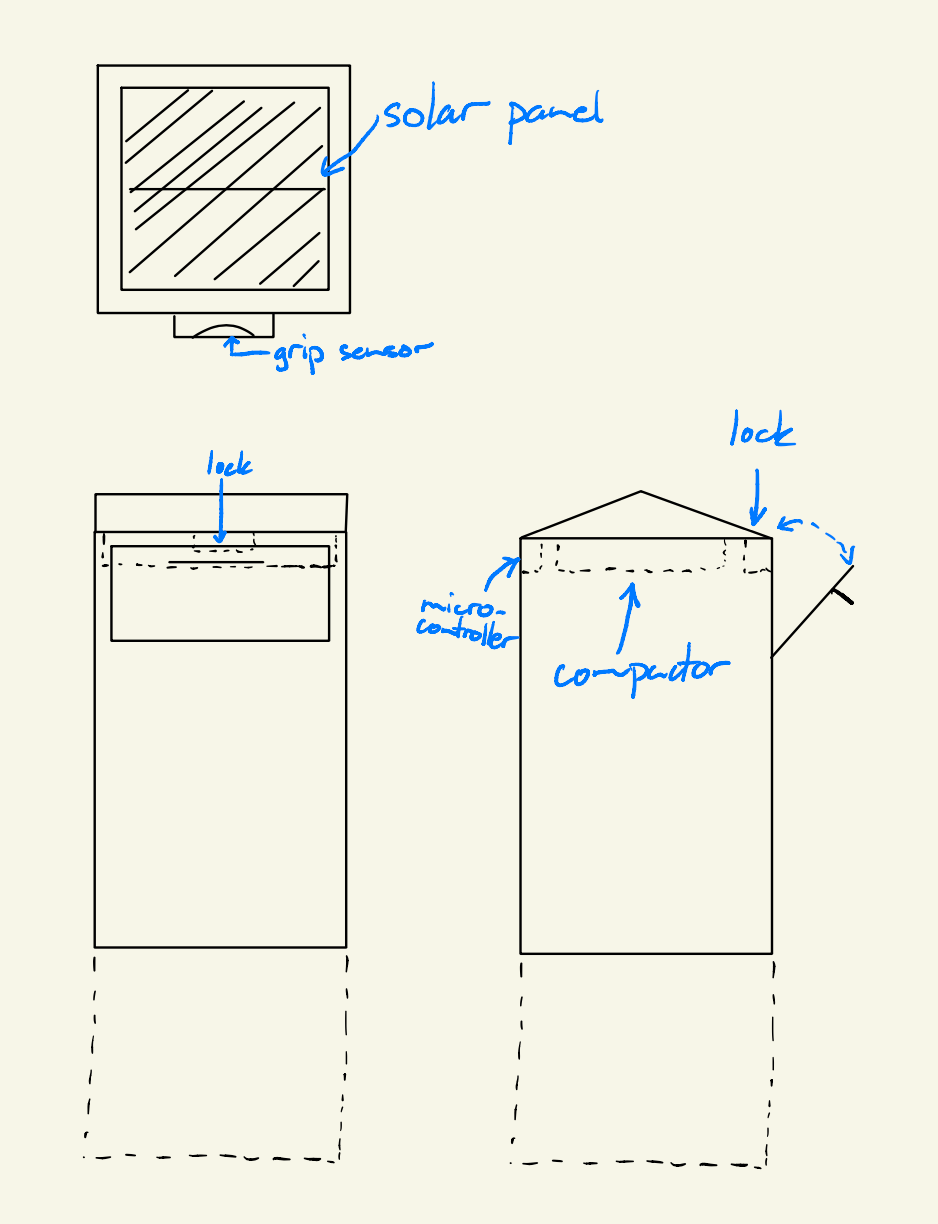 solar panel
grip sensor
lock
lock
micro-
controller
compactor